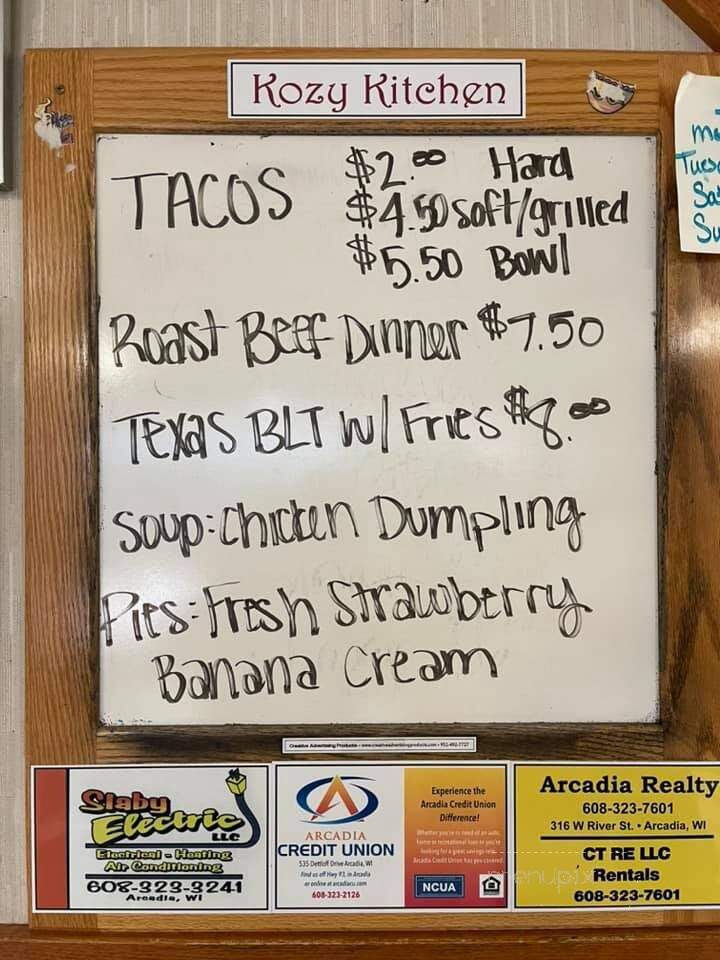 Kozy Kitchen
TACOS
$2.00 Hard
$4.50 soft/grilled
$5.50 Bowl
Roast Beef Dinner $7.50
Texas BLT w/ Fries $8.00
Soup: Chicken Dumpling
Pies: Fresh Strawberry
Banana Cream
Tues
Slaby
Electric
LLC
Electrical - Heating
Air Conditioning
608-323-3241
Arcadia, WI
ARCADIA
CREDIT UNION
535 Dettloff Drive Arcadia, WI
Find us off Hwy 93, in Arcadia
or online at arcadiacu.com
608-323-2126
Experience the
Arcadia Credit Union
Difference!
Whether you're in need of an auto,
home or recreational loan or you're
looking for a great savings rate,
Arcadia Credit Union has you covered.
NCUA
Arcadia Realty
608-323-7601
316 W River St. • Arcadia, WI
CT RE LLC
Rentals
608-323-7601
menupix